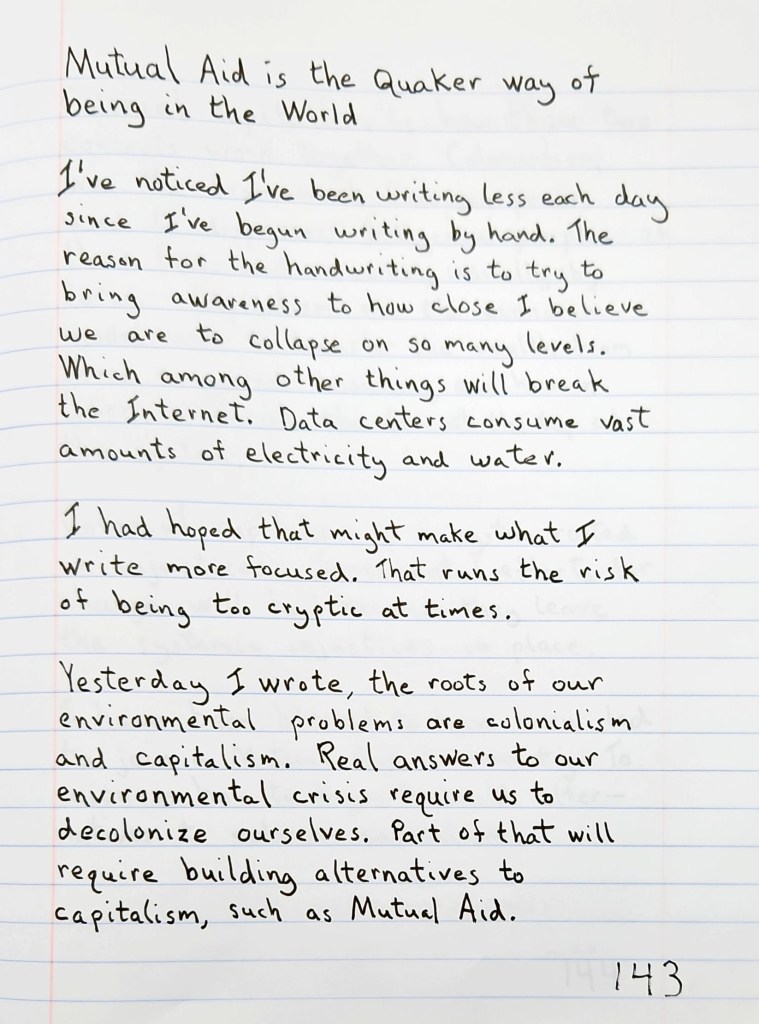 Mutual Aid is the Quaker way of
being in the World
I've noticed I've been writing less each day
since I've begun writing by hand. The
reason for the handwriting is to try to
bring awareness to how close I believe
we are to collapse on so many levels.
Which among other things will break
the Internet. Data centers consume vast
amounts of electricity and water.
I had hoped that might make what I
write more focused. That runs the risk
of being too cryptic at times.
Yesterday I wrote, the roots of our
environmental problems are colonialism
and capitalism. Real answers to our
environmental crisis require us to
decolonize ourselves. Part of that will
require building alternatives to
capitalism, such as Mutual Aid.
143